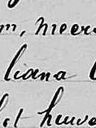 m, meer
liana
het huwe